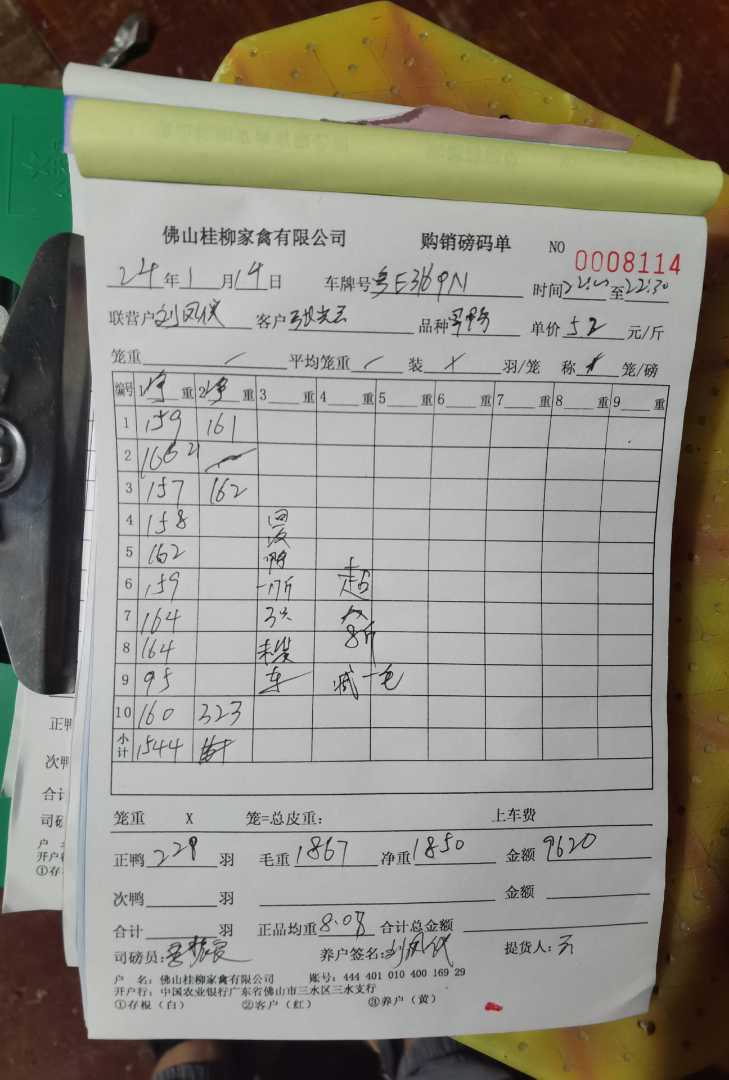 佛山桂柳家禽有限公司 购销磅码单 NO 0008114
24年1月14日 车牌号粤E369N 时间 至22:30
联营户刘凤仪 客户 品种 单价5.2元/斤
笼重 平均笼重 装 羽/笼 称 笼/磅
编号 1净重 2净重 3重 4重 5重 6重 7重 8重 9重
1 159 161
2 166
3 157 162
4 158 回
5 162 鸭
6 159 17斤 超
7 164 3只
8 164 未装 8斤
9 95 车 减一毛
10 160 323
小计 1544
笼重 X 笼=总皮重: 上车费
正鸭229羽 毛重1867 净重1850 金额9620
次鸭 羽 金额
合计 羽 正品均重8.08 合计总金额
司磅员: 养户签名:刘凤仪 提货人:
户 名:佛山桂柳家禽有限公司 账号:444 401 010 400 169 29
开户行:中国农业银行广东省佛山市三水区三水支行
①存根(白) ②客户(红) ③养户(黄)
正鸭
次鸭
合计
司磅
户
开户行
①存